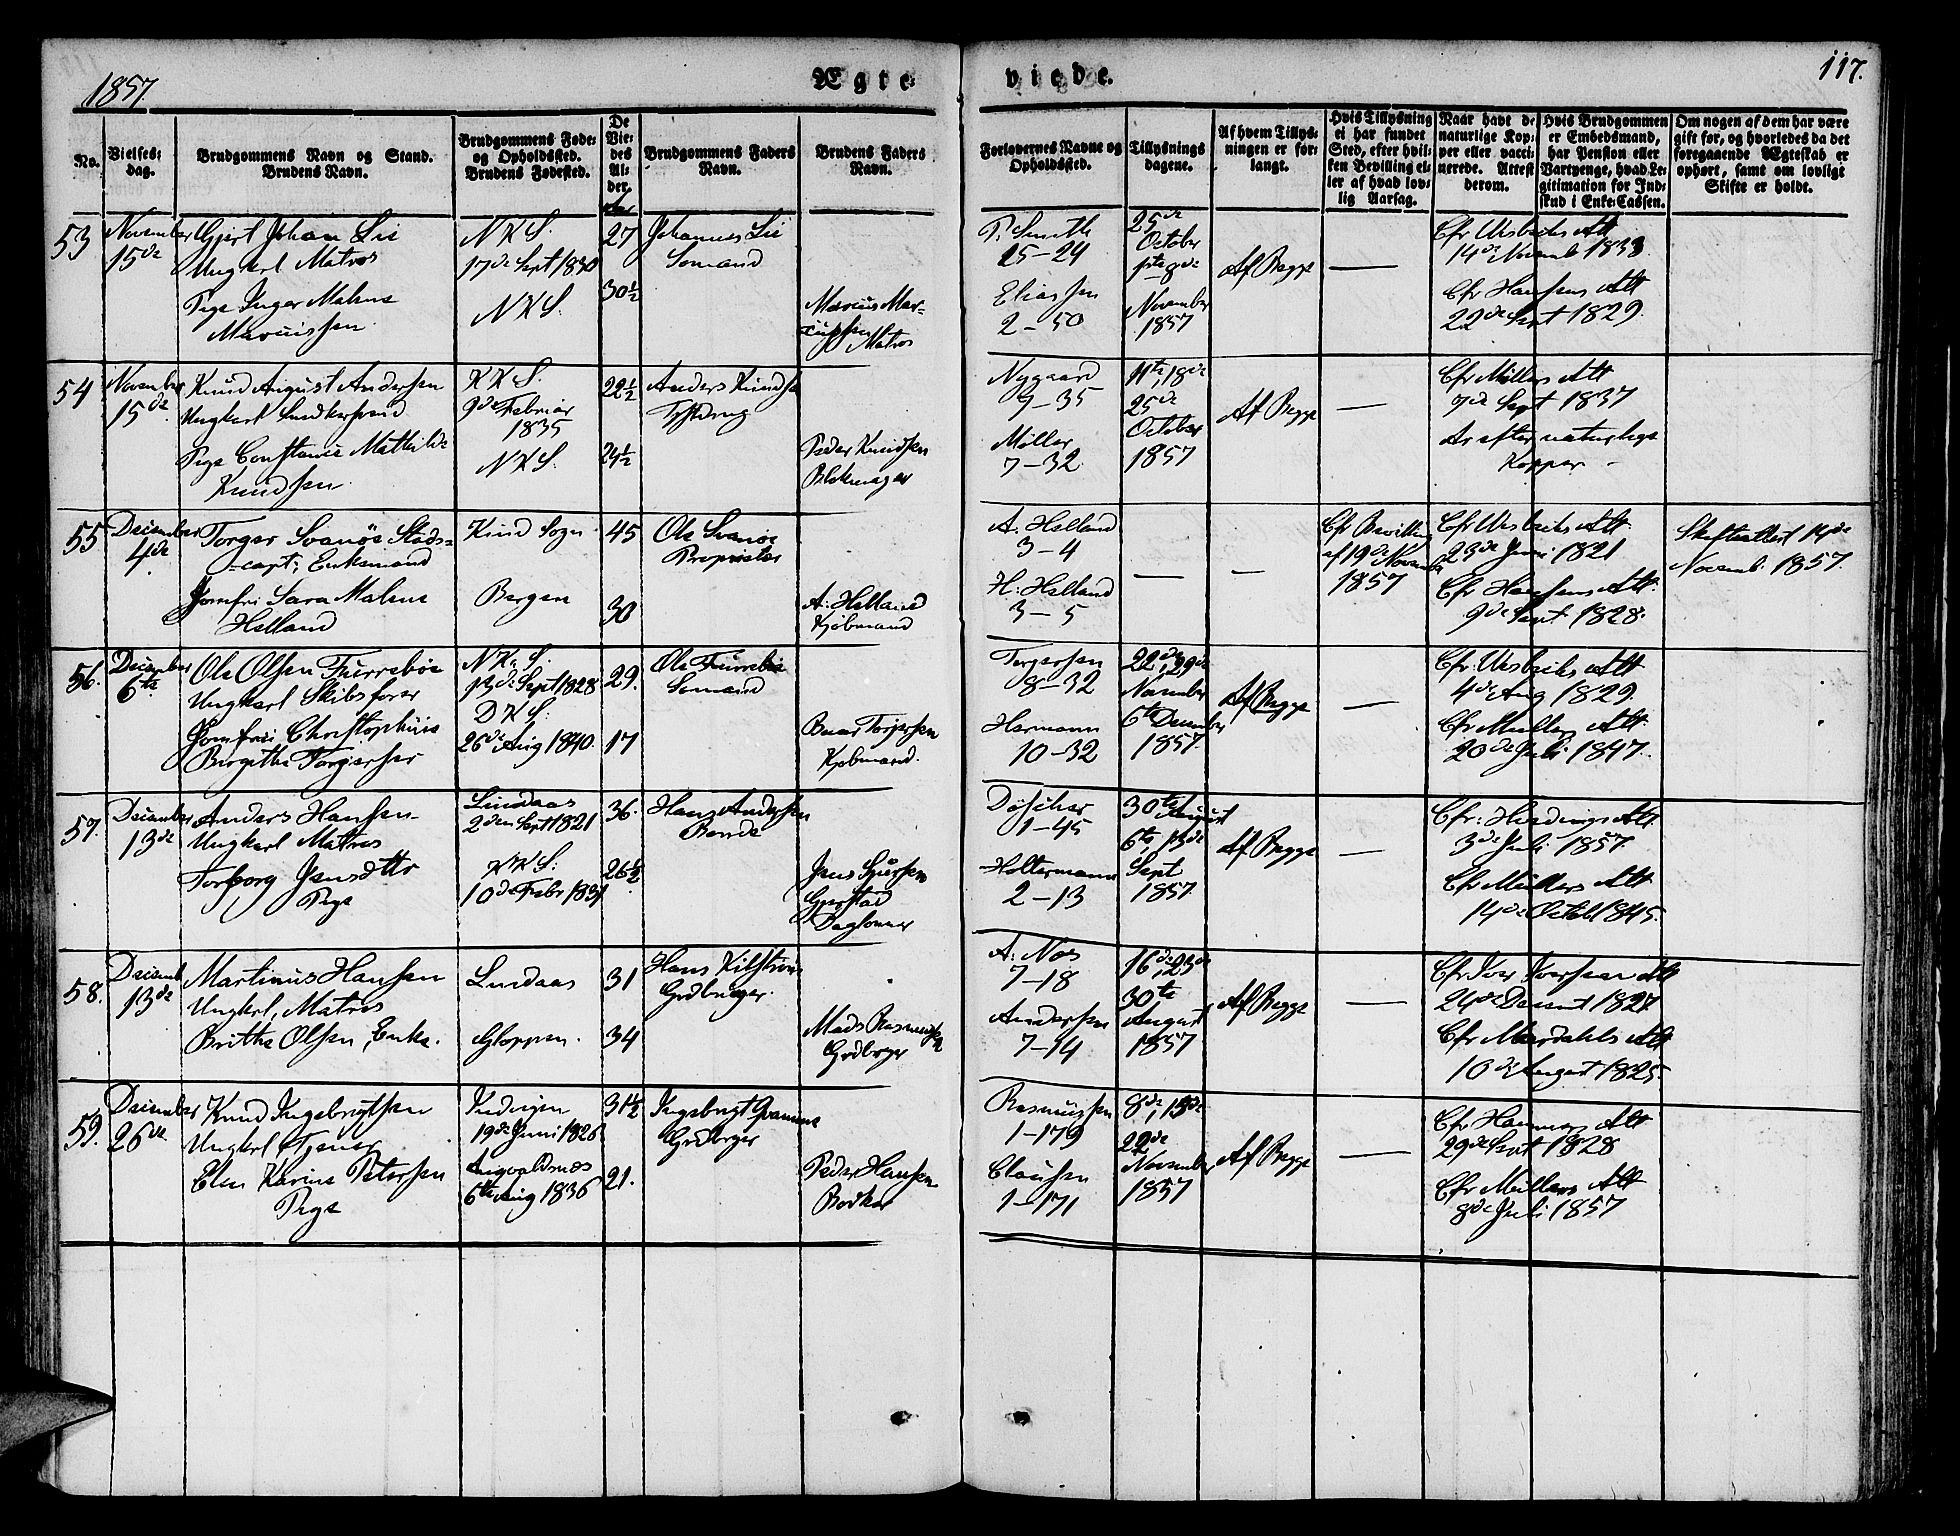 1857.
Ægte
viede.
117.
No.
Vielses-
dag.
Brudgommens Navn og Stand.
Brudens Navn.
Brudgommens Føde-
og Opholdssted.
Brudens Fødested.
De
Vie-
des
Al-
der.
Brudgommens Faders
Navn.
Brudens Faders
Navn.
Forlovernes Navne og
Opholdssted.
Tillysnings
dagene.
Af hvem Tillys-
ningen er for-
langt.
Hvis Tillysning
ei har fundet
Sted, efter hvil-
ken Bevilling el-
ler af hvad lov-
lig Aarsag.
Naar havt de
naturlige Kop-
per eller vacci-
nerede. Attest
derom.
Hvis Brudgommen
er Embedsmand,
har Pension eller
Vartpenge, hvad Le-
gitimation for Ind-
skud i Enke-Cassen.
Om nogen af dem har være
gift før, og hvorledes da det
foregaaende Ægteskab er
ophørt, samt om lovligt
Skifte er holdt.
53
November
15de
Gjert Johan Lie
Ungkarl Matros
Pige Inger Malene
Marcussen
NKS.
17de Sept 1830
NKS.
27
30½
Johannes Lie
Sømand
Marcus Mar-
cussen
Matros
P. Smith
25-24
Eliassen
2-50
25de
October
1ste 8de
November
1857
Af Begge
Cfr Uisbechs Att
14de Novemb 1833
Cfr Hansens Att
22de Sept 1829.
54
November
15de
Knud August Andersen
Ungkarl
Pige Constance Mathilde
Knudsen
KKS.
9de Februar
1835
NKS.
22½
24½
Anders Knudsen
Peder Knudsen
Blokmager
Nygaard
9-35
Møller
7-32
11te, 18de
25de
October
1857
Af Begge
Cfr Müllers Att
7de Sept 1837
Ar efter naturlige
Kopper
55
December
4de
Torger Svanöe Stads-
capt; Enkemand
Jomfru Sara Malene
Helland
Kind Sogn
Bergen
45
30
Ole Svanöe
Proprietær
A. Helland
Kjøbmand
A. Helland
3-4
H. Helland
3-5
Cfr Bevilling
af 19de November
1857
Cfr Uisbechs Att.
23de Juni 1821
Cfr Hansens Att.
9de Sept 1828.
Skifteattest 14de
Novemb. 1857.
56.
December
6te
Ole Olsen Furreböe
Ungkarl Skibsfører
Jomfru Christophine
Birgithe Torgersen
NKS.
13de Sept 1828
DKS.
26de Aug 1840.
29.
17
Ole Furreböe
Sømand
Torgersen
Kjøbmand.
Torgersen
8-32
Harmann
10-32
22de, 29de
November
6te December
1857.
Af Begge
Cfr. Uisbechs Att
4de Aug 1829.
Cfr Müllers Att
20de Juli 1847.
57.
December
13de
Anders Hansen
Ungkarl Matros
Torborg Jensdtr
Pige
Lindaas
2den Sept 1821
KKS.
10de Febr 1831
36.
26½
Hans Andersen
Bonde
Jens Sjursen
Gjerstad
Daglønner
1-45
Holtermann
2-13
30te August
6te, 13de
Sept
1857
Af Begge
Cfr. Hvidings Att.
3de Juli 1857.
Cfr Müllers Att
14de Octob 1845.
58.
Decemb.
13de
Martinus Hansen
Ungkarl, Matros
Brithe Olsen, Enke.
Lindaas
Gloppen.
31
34
Hans Kilstrøm
Grdbruger.
Mads Rasmussen
Grdbrger
A. Næs
7-18
Andersen
7-14
16de, 23de
30te
August
1857
Af Begge
Cfr Iver Iversens Att
24de Decemt 1827.
Cfr Mardahls Att
10de August 1825.
59.
December
26de
Knud Ingebrigtsen
Ungkarl Tjener
Elen Karine Petersen
Pige
Indvigen
19de Juni 1826
Augvaldsnæs
6te Aug 1836
31½
21.
Ingebrigt
Grdbrger
Peder Hansen
Bødker
Rasmussen
1-179
Claussen
1-171
8de, 15de
22de
November
1857
Af Begge
Cfr Hammers Att
29de Sept 1828
Cfr Müllers Att
8de Juli 1857